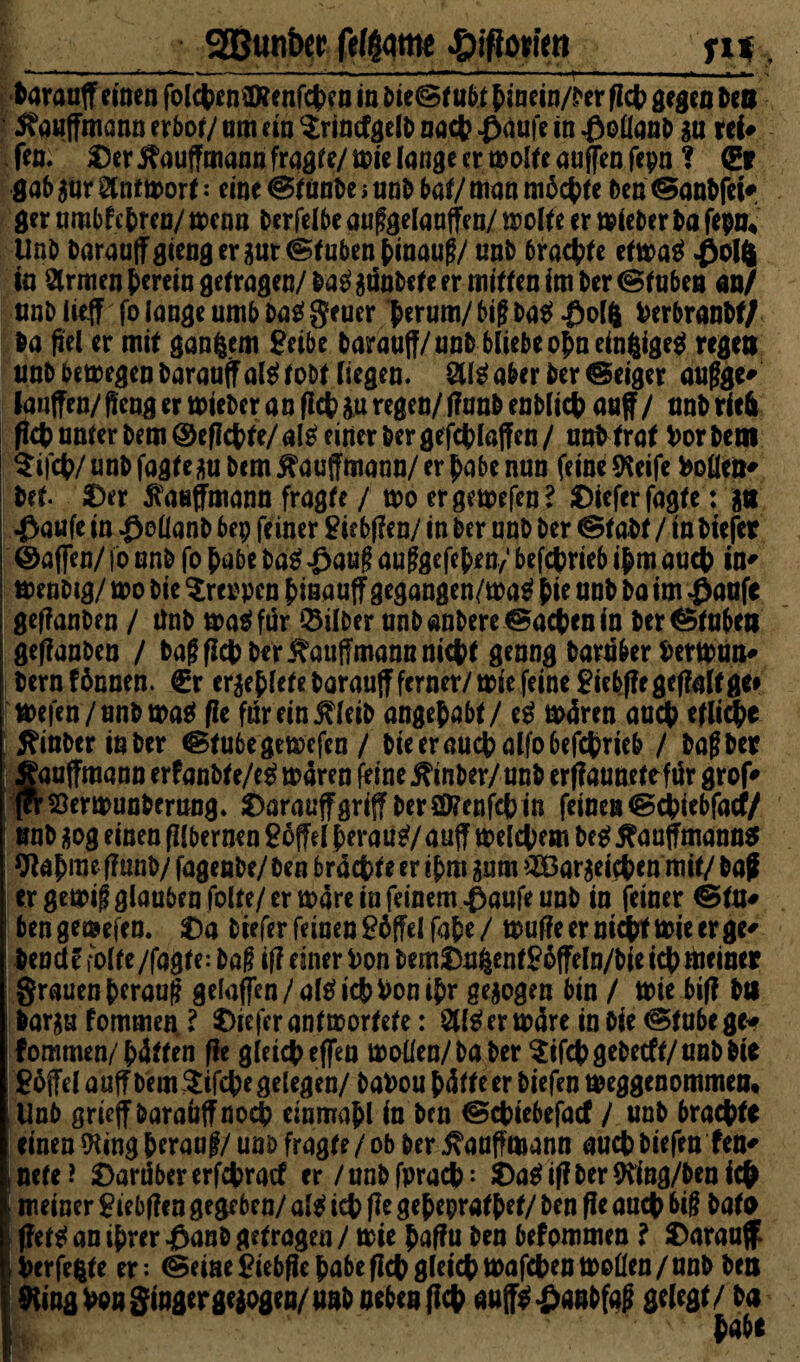 Wunder seltzame Historien 511.
darauff einen solchen Menschen in die Stubt hinein/ der sich gegen den
Kauffmann erbot/ um ein Trinckgeld nach Hause in Holland zu rei-
sen. Der Kauffmann fragte/ wie lange er wolte aussen seyn? Er
gab zur Antwort: eine Stunde; und bat/ man möchte den Sandsei-
ger umbkehren/ wenn derselbe außgelauffen/ wolte er wieder da seyn.
Und darauff gieng er zur Stuben hinauß/ und brachte etwas Holtz
in Armen herein getragen/ das zündete er mitten im der Stuben an/
und lieff so lange umb das Feuer herum/ biß das Holtz verbrandt/
da fiel er mit gantzem Leibe darauff/ und bliebe ohn eintziges regen
und bewegen darauff als todt liegen. Als aber der Seiger außge-
lauffen/ fieng er wieder an sich zu regen/ stund endlich auff / und rieb
sich unter dem Gesichte/ als einer der geschlaffen / und trat vor dem
Tisch/ und sagte zu dem Kauffmann/ er habe nun seine Reise vollen-
det. Der Kauffmann fragte / wo er gewesen? Dieser sagte: zu
Hause in Holland bey seiner Liebsten/ in der und der Stadt / in dieser
Gassen/ so und so habe das Hauß außgesehen/ beschrieb ihm auch in-
wendig/ wo die Treppen hinauff gegangen/ was hie und da im Hause
gestanden / und was für Bilder und andere Sachen in der Stuben
gestanden / daß sich der Kauffmann nicht genng darüber verwun-
dern können. Er erzehlete darauff ferner/ wie seine Liebste gestalt ge-
wesen / und was sie für ein Kleid angehabt / es wären auch etliche
Kinder in der Stube gewesen / die er auch also beschrieb / daß der
Kauffmann erkandte/ es wären seine Kinder/ und erstaunete für gros-
ser Verwunderung. Darauff griff der Mensch in seinen Schiebsack/
und zog einen silbernen Löffel heraus/ auff welchem des Kauffmanns
Nahme stund/ sagende/ den brächte er ihm zum Warzeichen mit/ daß
er gewiß glauben solte/ er wäre in seinem Hause und in seiner Stu-
ben gewesen. Da dieser seinen Löffel sahe / wuste er nicht wie er ge-
dencken solte /sagte: daß ist einer von dem Dutzent Löffeln/ die ich meiner
Frauen herauß gelassen / als ich von ihr gezogen bin / wie bist du
darzu kommen ? Dieser antwortete: Als er wäre in die Stube ge-
kommen/ hätten sie gleich essen wollen/ da der Tisch gedeckt/ und die
Löffel auff dem Tische gelegen/ davou hätte er diesen weggenommen.
Und grieff darauff noch einmahl in den Schiebesack / und brachte
einen Ring herauß/ und fragte / ob der Kauffmann auch diesen ken-
nete? Darüber erschrack er / und sprach: Das ist der Ring/ den ich
meiner Liebsten gegeben/ als ich sie geheyrathet/ den sie auch biß dato
stets an ihrer Hand getragen / wie hastu den bekommen ? Darauff
versetzte er: Seine Liebste habe sich gleich waschen wollen / und den
Ring von Finger gezogen/ und neben sich auffs Handfaß gelegt / da
habe